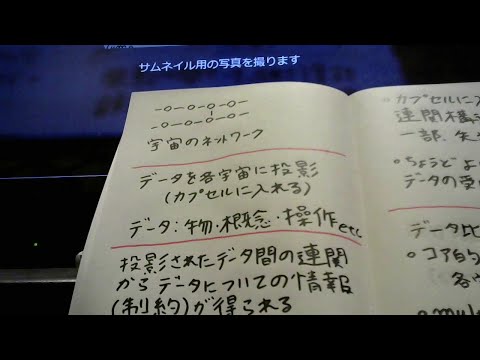 サムネイル用の写真を撮ります
宇宙のネットワーク
データを各宇宙に投影
(カプセルに入れる)
データ:物・概念・操作etc
投影されたデータ間の連関
からデータについての情報
(制約)が得られる
。カプセルに入
連関構
一部、失
。ちょうどよ
データの受
データ比
。コア的
各